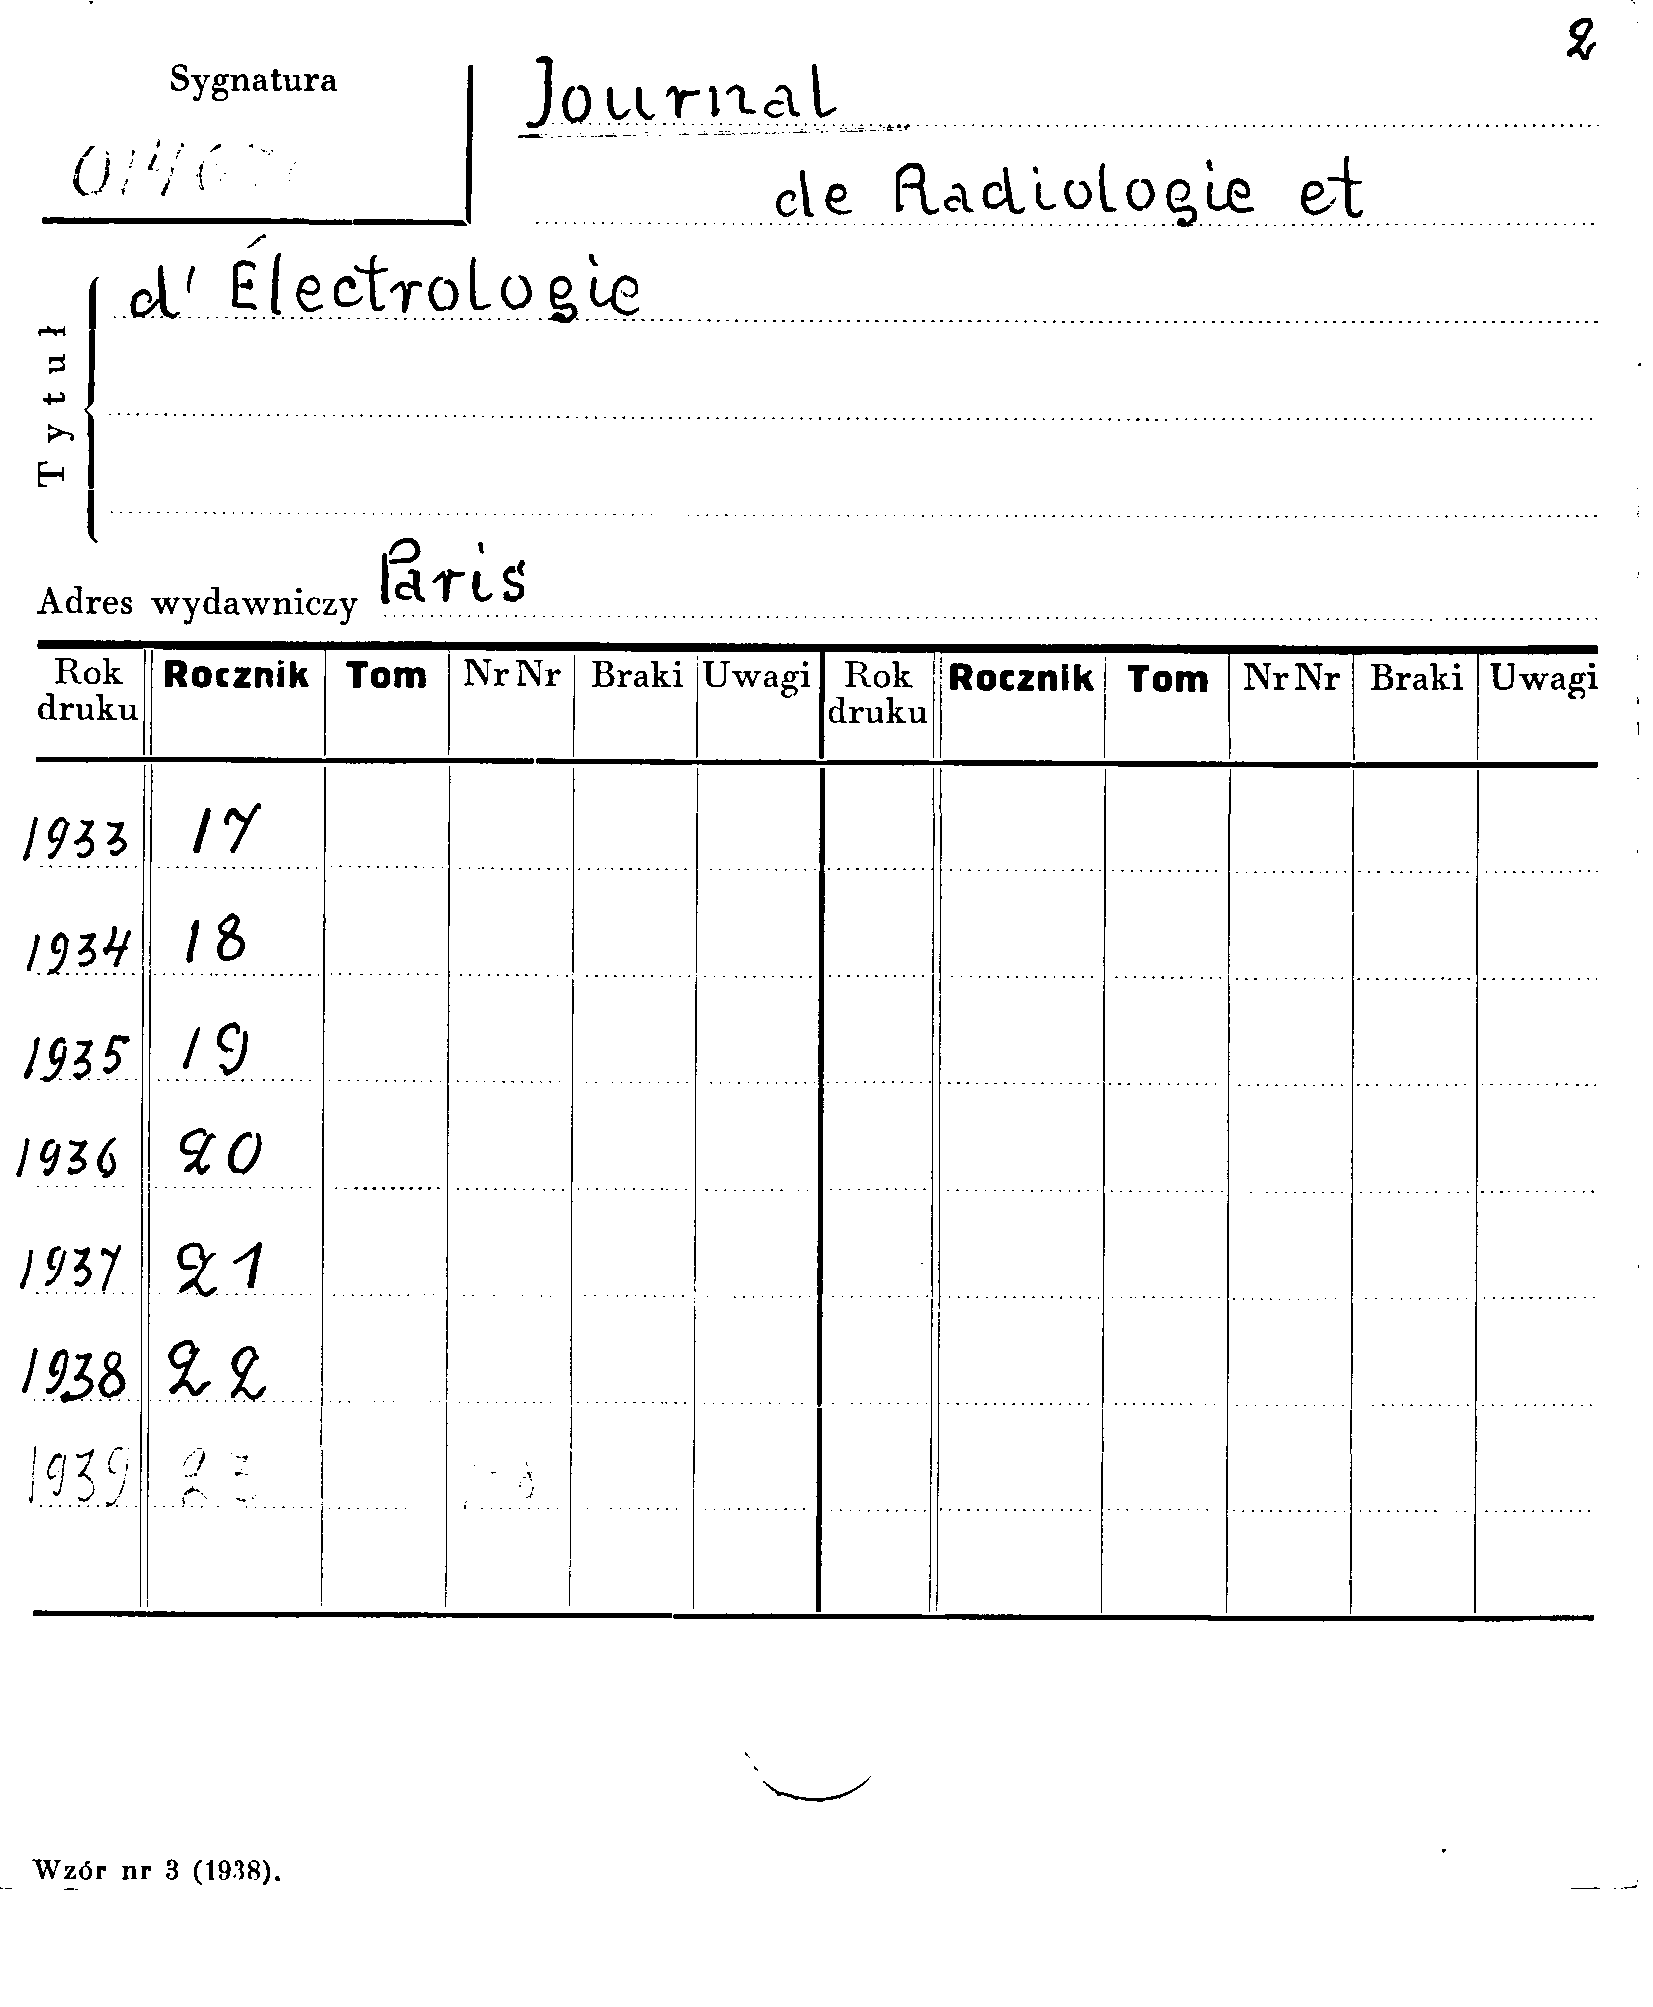 2
Sygnatura
Journal
de Radiologie et
d' Électrologie
Tytuł
Adres wydawniczy Paris
Rok druku Rocznik Tom Nr Nr Braki Uwagi Rok druku Rocznik Tom Nr Nr Braki Uwagi
1933 17
1934 18
1935 19
1936 20
1937 21
1938 22
1939 23
Wzór nr 3 (1938).